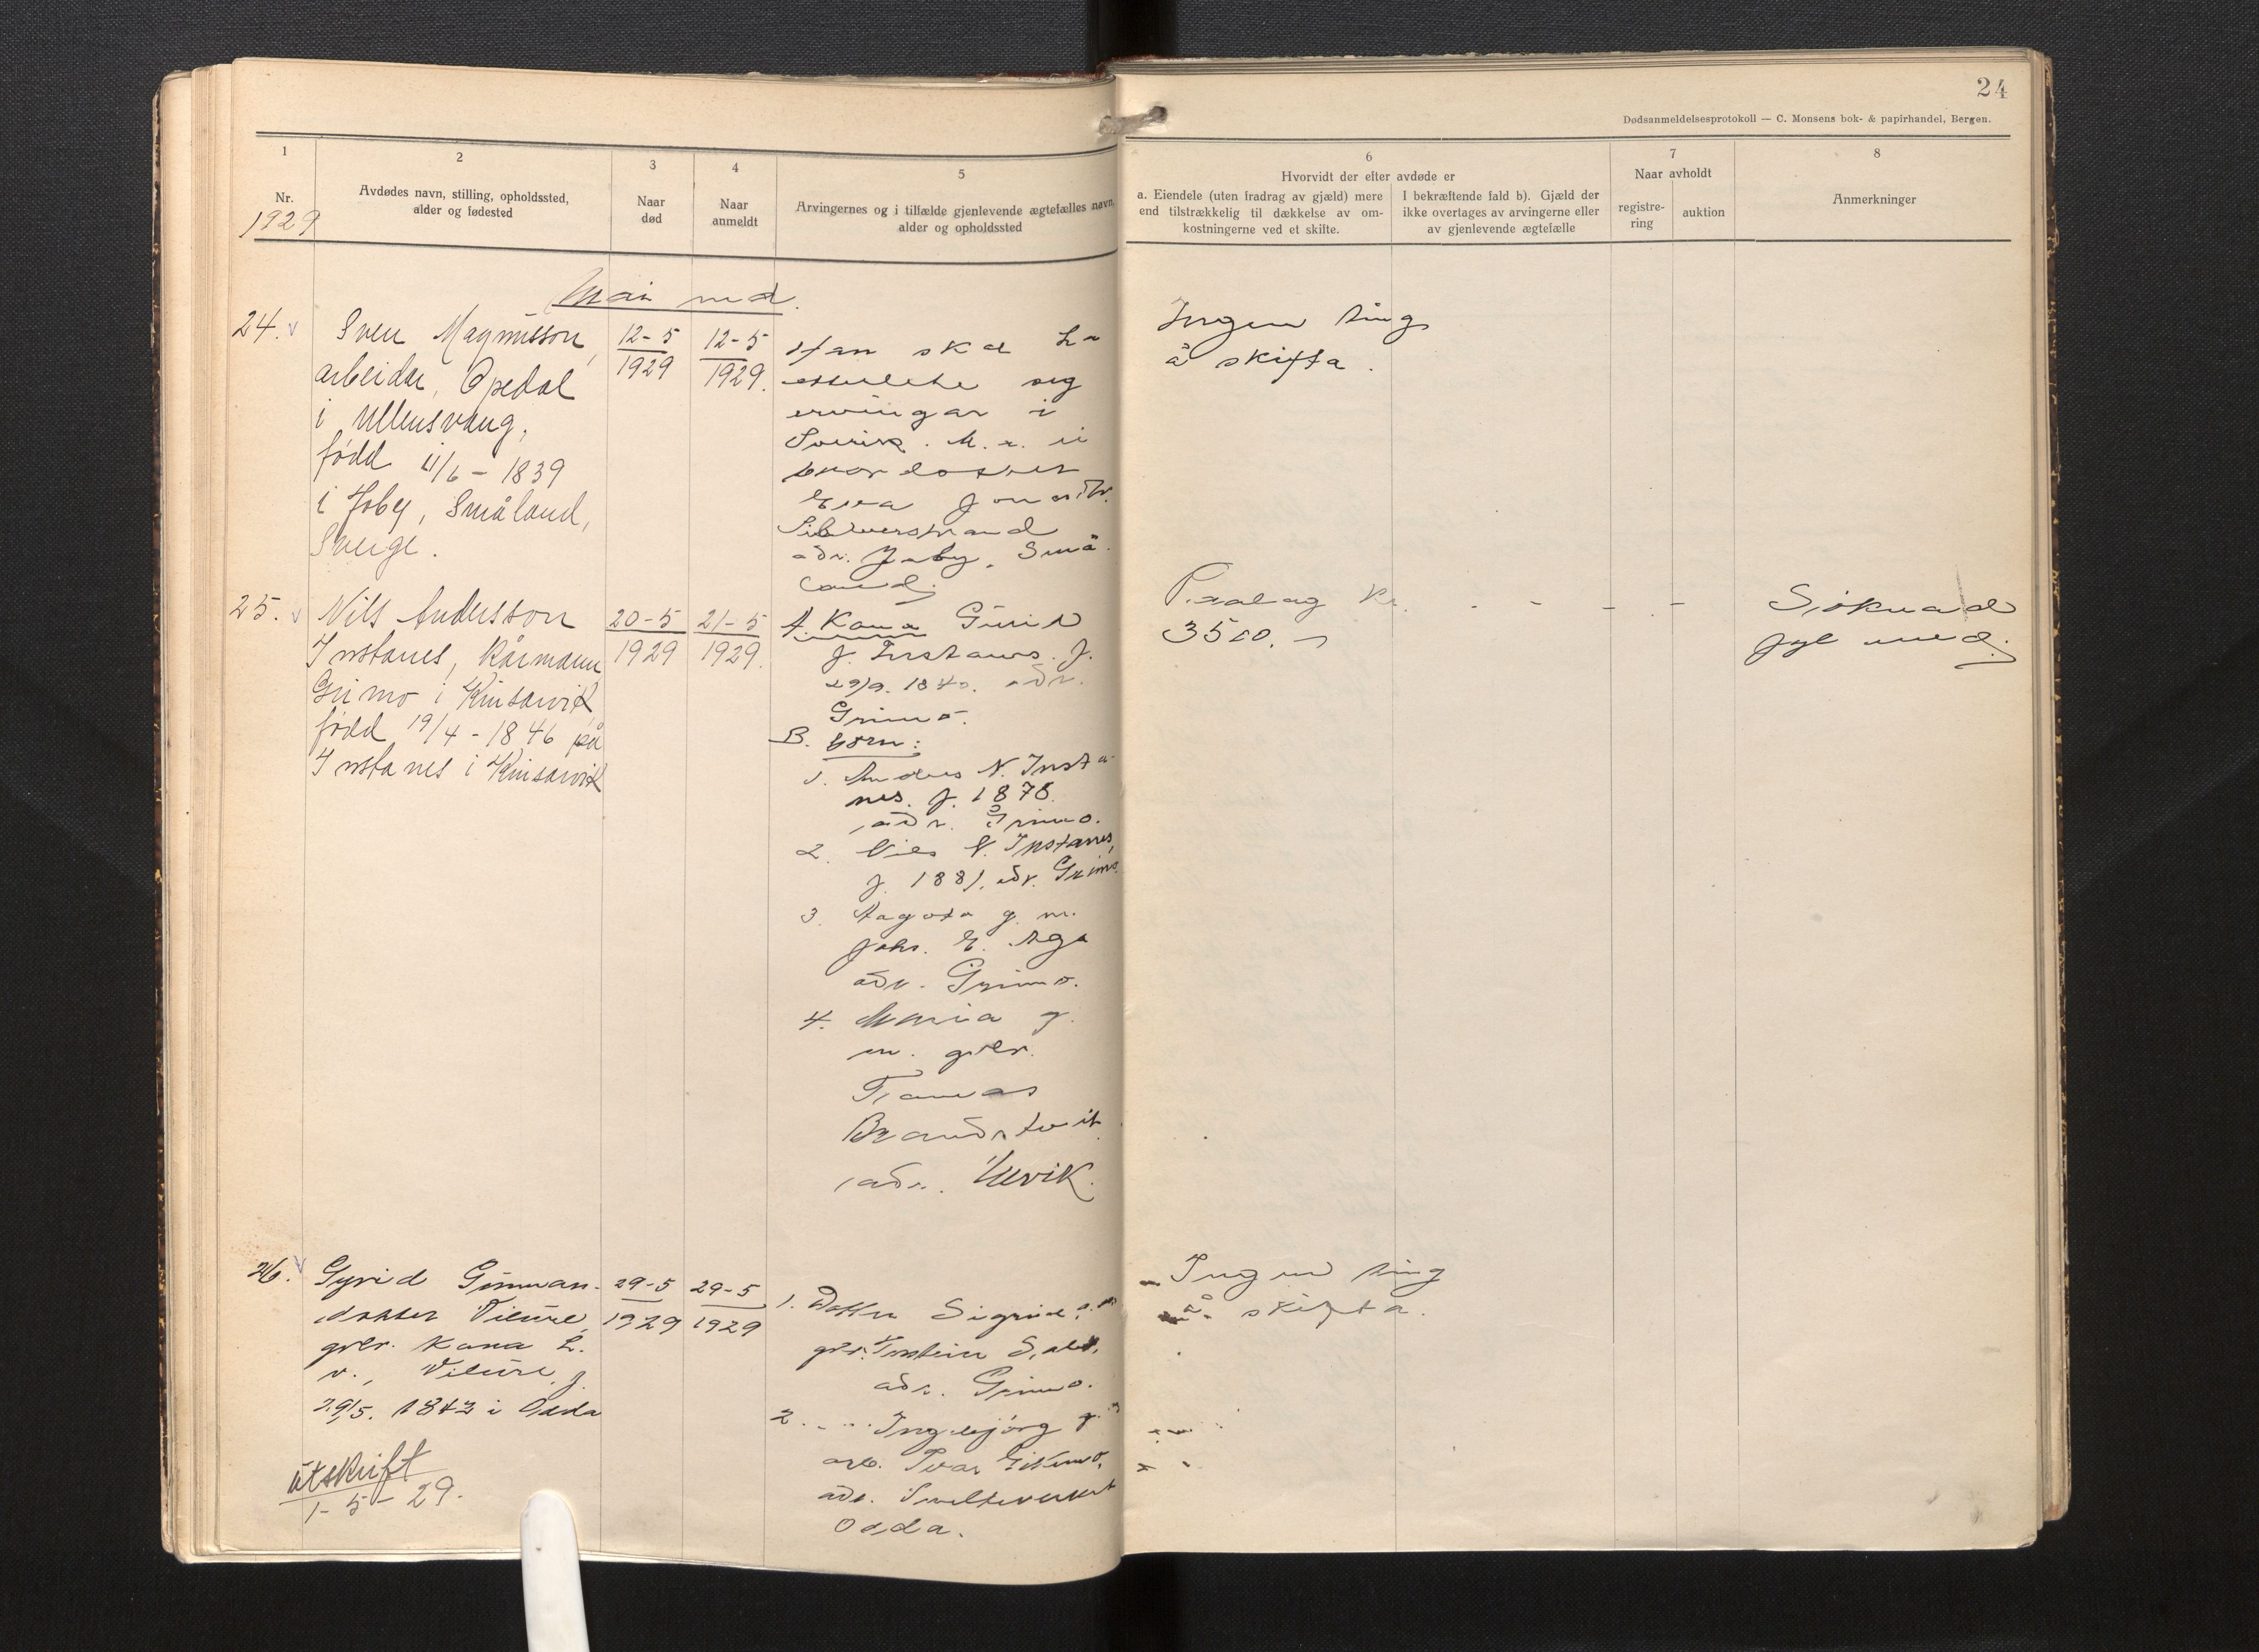 24
Dødsanmeldelsesprotokoll — C. Monsens bok- & papirhandel, Bergen.
1
Nr.
1929
2
Avdødes navn, stilling, opholdssted,
alder og fødested
3
Naar
død
4
Naar
anmeldt
5
Arvingernes og i tilfælde gjenlevende ægtefælles navn,
alder og opholdssted
6
Hvorvidt der efter avdøde er
a. Eiendele (uten fradrag av gjæld) mere
end tilstrækkelig til dækkelse av om-
kostningerne ved et skifte.
I bekræftende fald b). Gjæld der
ikke overtages av arvingerne eller
av gjenlevende ægtefælle
7
Naar avholdt
registre-
ring
auktion
8
Anmerkninger
Mai md.
24.
Sven Magnusson,
arbeidar, Opedal
i Ullensvang,
född 11/6 - 1839
i Joby, Småland,
Sverige.
12-5
1929
12-5
1929.
Han skal ha
etterlete seg
ervingar i
Sverike. M. a. ei
brordotter
Eva
adr. Jaby, Små-
land.
Ingen ting
å skifta.
25.
Nils Andersson
Instanes, kårmann
Grimo i Kinsarvik
född 19/4 - 1846 på
Instanes i Kinsarvik
20-5
1929
21-5
1929.
A. Kona Gurid
f. Instanes. f.
29/9. 1840. adr.
Grimo.
B. born:
1. Anders N. Insta-
nes. f. 1878.
adr. Grimo.
2. Nils N. Instanes,
f. 1881. adr. Grimo.
3. Aagota g. m.
Johs. E. Aga
adr. Grimo.
4. Maria g.
m. gbr.
Tomas
adr. Ulvik.
kr. - - - -
3500.-
Søknad
fyl med.
26.
Gyrid Gunnars-
dotter Vilure,
gbr. kona L.
v. Vilure, f.
29/5. 1843 i Odda
29-5
1929
29-5
1929
1. Dotter Sigrid, g. m.
gbr. Torstein
adr. Grimo.
2. - " - Ingebjörg g. m.
arb. Ivar Eikemo,
adr. Smelteverket
Odda.
Ingen ting
å skifta.
Utskrift
1-5-29.